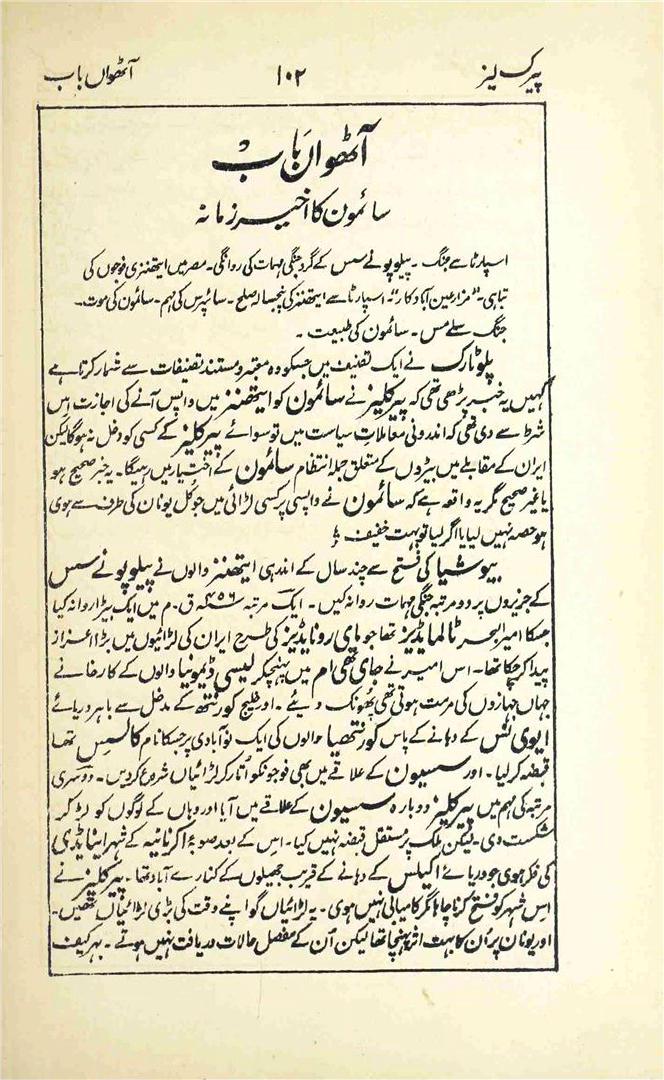 پیرکلیز
۱۰۲
آٹھواں باب
آٹھواں باب
سائمون کا اخیر زمانہ
اسپارٹا سے جنگ ۔ پیلوپونےسس کے گرد جنگی مہمات کی روانگی ۔ مصر میں ایتھننزی فوجوں کی
تباہی ۔ "مزارعین آبادکار" ۔ اسپارٹا سے ایتھننز کی پنجسالہ صلح ۔ سائپرس کی مہم ۔ سائمون کی موت ۔
جنگ سلےمس ۔ سائمون کی طبیعت ۔
پلوٹارک نے ایک تصنیف میں جسکو وہ معتمد و مستند تصنیفات سے شمار کرتا ہے
کہیں یہ خبر پڑھی تھی کہ پیرکلیز نے سائمون کو ایتھننز میں واپس آنے کی اجازت اس
شرط سے دی تھی کہ اندرونی معاملات سیاست میں تو سوائے پیرکلیز کے کسی کو دخل نہ ہوگا لیکن
ایران کے مقابلے میں بیڑوں کے متعلق جملہ انتظام سائمون کے اختیار میں رہیگا ۔ یہ خبر صحیح ہو
یا غیر صحیح مگر یہ واقعہ ہے کہ سائمون نے واپسی پر کسی لڑائی میں جو کل یونان کی طرف سے ہوی
ہو حصہ نہیں لیا یا اگر لیا تو بہت خفیف ؛
بیوشیا کی فتح سے چند سال کے اندر ہی ایتھننز والوں نے پیلوپونےسس
کے جزیروں پر دو مرتبہ جنگی مہمات روانہ کیں ۔ ایک مرتبہ ۴۵۶ ق ۔ م میں ایک بیڑا روانہ کیا
جسکا امیرالبحر ٹالمائڈیز تھا جو مائی رونائڈیز کی طرح ایران کی لڑائیوں میں بڑا اعزاز
پیدا کرچکا تھا ۔ اس امیر نے جائی تھی ام میں پہنچکر لیسی ڈیمونیا والوں کے کارخانے
جہاں جہازوں کی مرمت ہوتی تھی پھونک دیئے ۔ اور خلیج کورنتھ کے مدخل سے باہر دریائے
ایوی نس کے دہانے کے پاس کورنتھیا والوں کی ایک نوآبادی پر جسکا نام کالسس تھا
قبضہ کرلیا ۔ اور سسیون کے علاقے میں بھی فوجونکو اُتار کر لڑائیاں شروع کردیں ۔ دوسری
مرتبہ کی مہم میں پیرکلیز دوبارہ سسیون کے علاقے میں آیا اور وہاں کے لوگوں کو لڑ کر
شکست دی ۔ لیکن ملک پر مستقل قبضہ نہیں کیا ۔ اس کے بعد صوبۂ اکرنانیہ کے شہر اینائڈی
کی فکر ہوی جو دریائے اکیلس کے دہانے کے قریب جھیلوں کے کنارے آباد تھا ۔ پیرکلیز نے
اس شہر کو فتح کرنا چاہا مگر کامیابی نہیں ہوی ۔ یہ لڑائیاں گو اپنے وقت کی بڑی لڑائیاں تھیں ۔
اور یونان پر اُن کا بہت اثر پہنچا تھا لیکن اُن کے مفصل حالات دریافت نہیں ہوتے ۔ بہرکیف